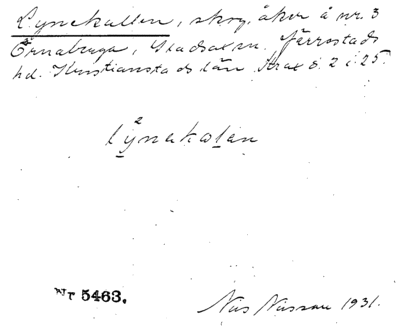 Lynekullen, skog, åker å nr 3
Örnabruga, Gladsax sn. Järrestads
hd. Kristianstads län Strax ö. 2 i 25.
lynekolan
Nr 5463.
Nils Nilsson 1931.